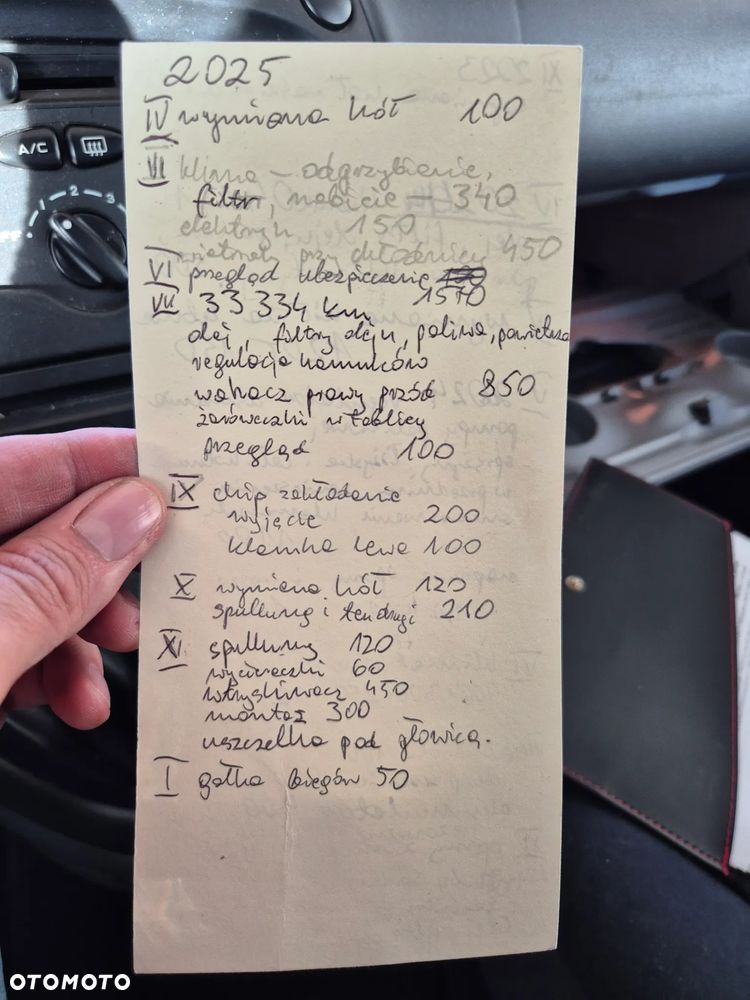 2025
IV wymiana kół 100
VI klima - odgrzybienie,
filtr, nabicie - 340
elektryk 150
wiatraki przy chłodnicy 450
VI przegląd ubezpieczenie
VII 33 334 km 1510
olej, filtry oleju, paliwa, powietrza
regulacja hamulców
wahacz prawy przód 850
żaróweczki w tablicy
przegląd 100
IX chip założenie
wyjęcie 200
klamka lewa 100
X wymiana kół 120
spullung i ten drugi 210
XI spullung 120
wycieraczki 60
wtryskiwacz 450
montaż 300
uszczelka pod głowicą.
I gałka biegów 50
A/C
1 2 3
OTOMOTO